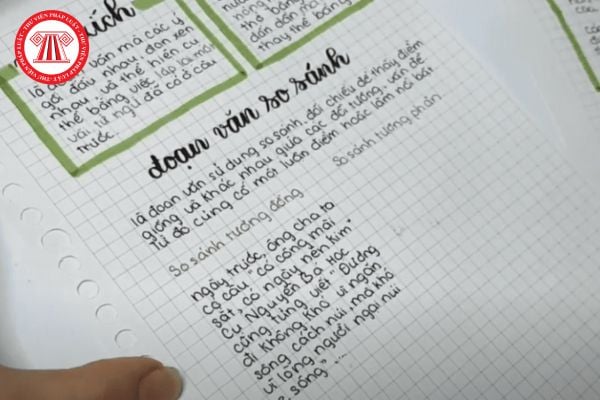 THƯ VIỆN PHÁP LUẬT
xích
là đoạn văn mà các ý
gối đầu nhau, đan xen
nhau và thể hiện cụ
thể bằng việc lặp lại một
vài từ ngữ đã có ở câu
trước.
thay thế bằng
đoạn văn so sánh
là đoạn văn sử dụng so sánh, đối chiếu để thấy điểm
giống và khác nhau giữa các đối tượng, vấn đề
Từ đó củng cố mới luận điểm hoặc làm nổi bật
So sánh tương đồng
So sánh tương phản
ngày trước, ông cha ta
có câu "có công mài
sắt, có ngày nên kim"
Cụ Nguyễn Bá Học
cũng từng viết "Đường
đi không khó vì ngăn
sông cách núi mà khó
vì lòng người ngại núi
e sông" ...